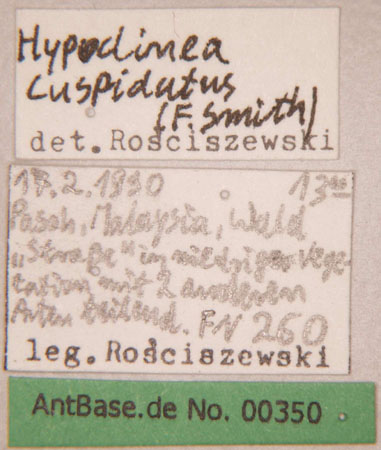 Hypoclinea
cuspidatus
(F. Smith)
det. Rościszewski
17.2.1990 13⁰⁰
Pasoh, Malaysia, Wald
„Straße“ in niedriger Vege-
tation mit 2 anderen
Arten teilend. FN 260
leg. Rościszewski
AntBase.de No. 00350